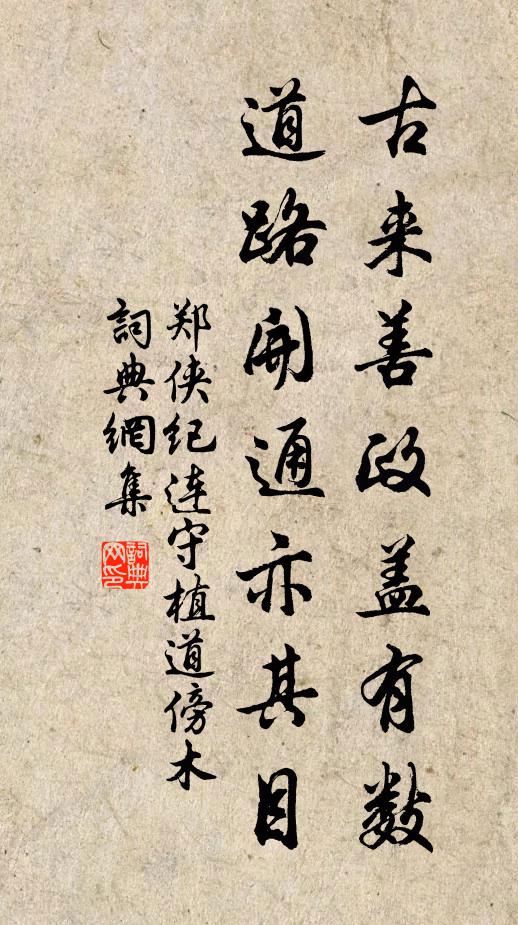 古来善政盖有数
道路开通亦其目
郑侠纪连守植道傍木
詞典網集
詞典网印